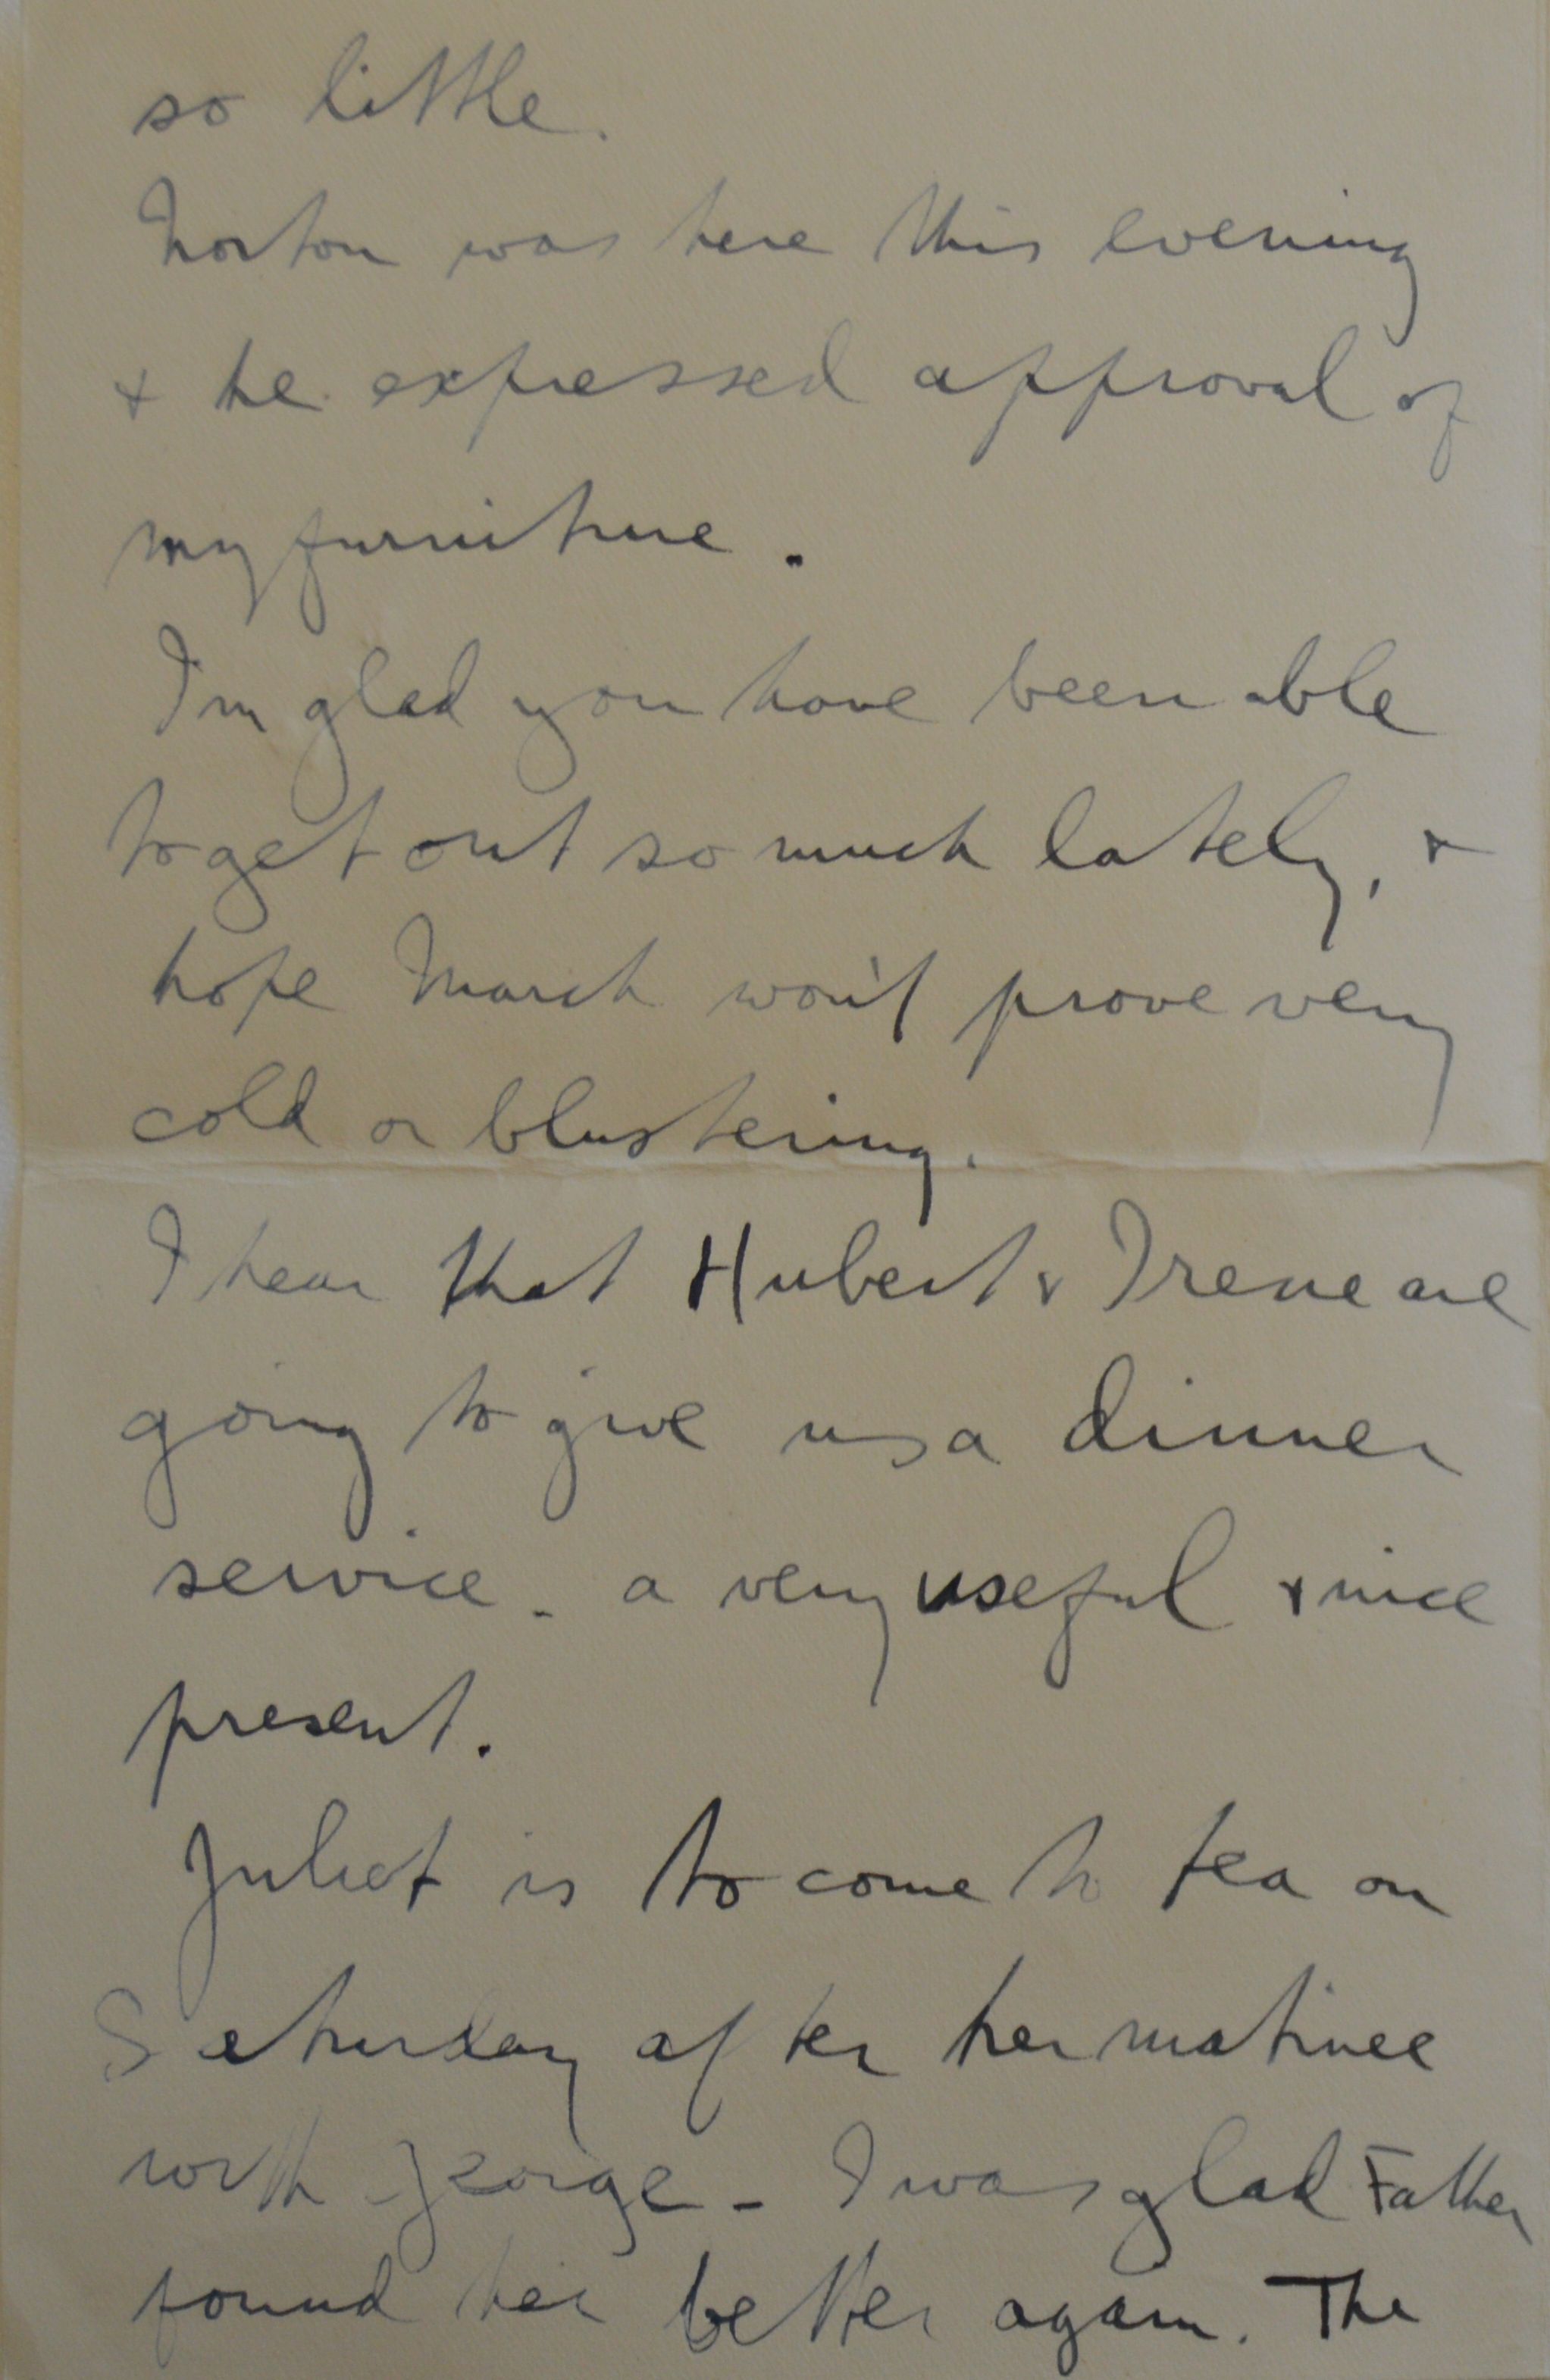 so little.
Norton was here this evening
& he expressed approval of
my furniture.
I'm glad you have been able
to get out so much lately, &
hope March won't prove very
cold or blustering.
I hear that Hubert & Irene are
going to give us a dinner
service - a very useful & nice
present.
Juliet is to come to tea on
Saturday after her matinee
with George - I was glad Father
found her better again. The